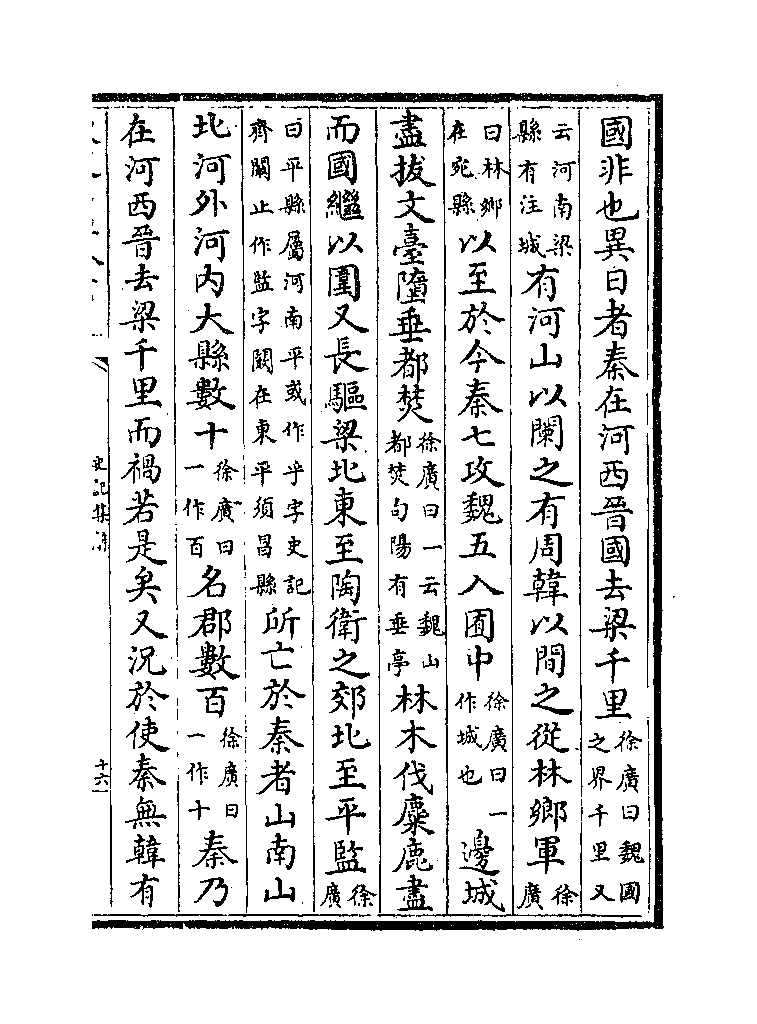 國非也異日者秦在河西晉國去梁千里徐廣曰魏國之界千里又
云河南梁縣有注城有河山以闌之有周韓以間之從林鄉軍徐廣
曰林鄉在宛縣以至於今秦七攻魏五入囿中徐廣曰一作城也邊城
盡拔文臺墮垂都焚徐廣曰一云魏山都焚句陽有垂亭林木伐麋鹿盡
而國繼以圍又長驅梁北東至陶衛之郊北至平監徐廣
曰平縣屬河南平或作乎字史記齊闞止作監字闞在東平須昌縣所亡於秦者山南山
北河外河內大縣數十徐廣曰一作百名郡數百徐廣曰一作十秦乃
在河西晉去梁千里而禍若是矣又況於使秦無韓有
史記集解
十六